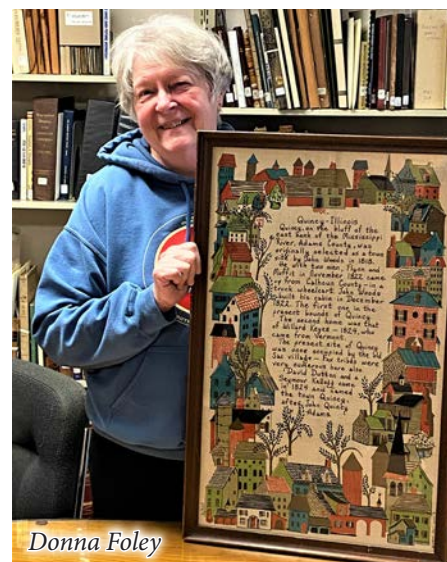 Quincy-Illinois
Quincy, on the bluff of the
east bank of the Mississippi
River, Adams County, was
originally selected as a town
site by John Woods in 1818.
He with two men, Flynn and
Moffit in November 1822 came
up from Calhoun County in a
truck wheelcart. John Woods
built his cabin in December
1822. The first one in the
present bounds of Quincy.
The second home was that
of Willard Keyes - 1824, who
came from Vermont.
The present site of Quincy
was once occupied by the
Sac village - Fox tribes were
very numerous here also
David Dutton and
Seymour Kellogg came
in 1824 and named
the town Quincy,
after John Quincy
Adams
Donna Foley